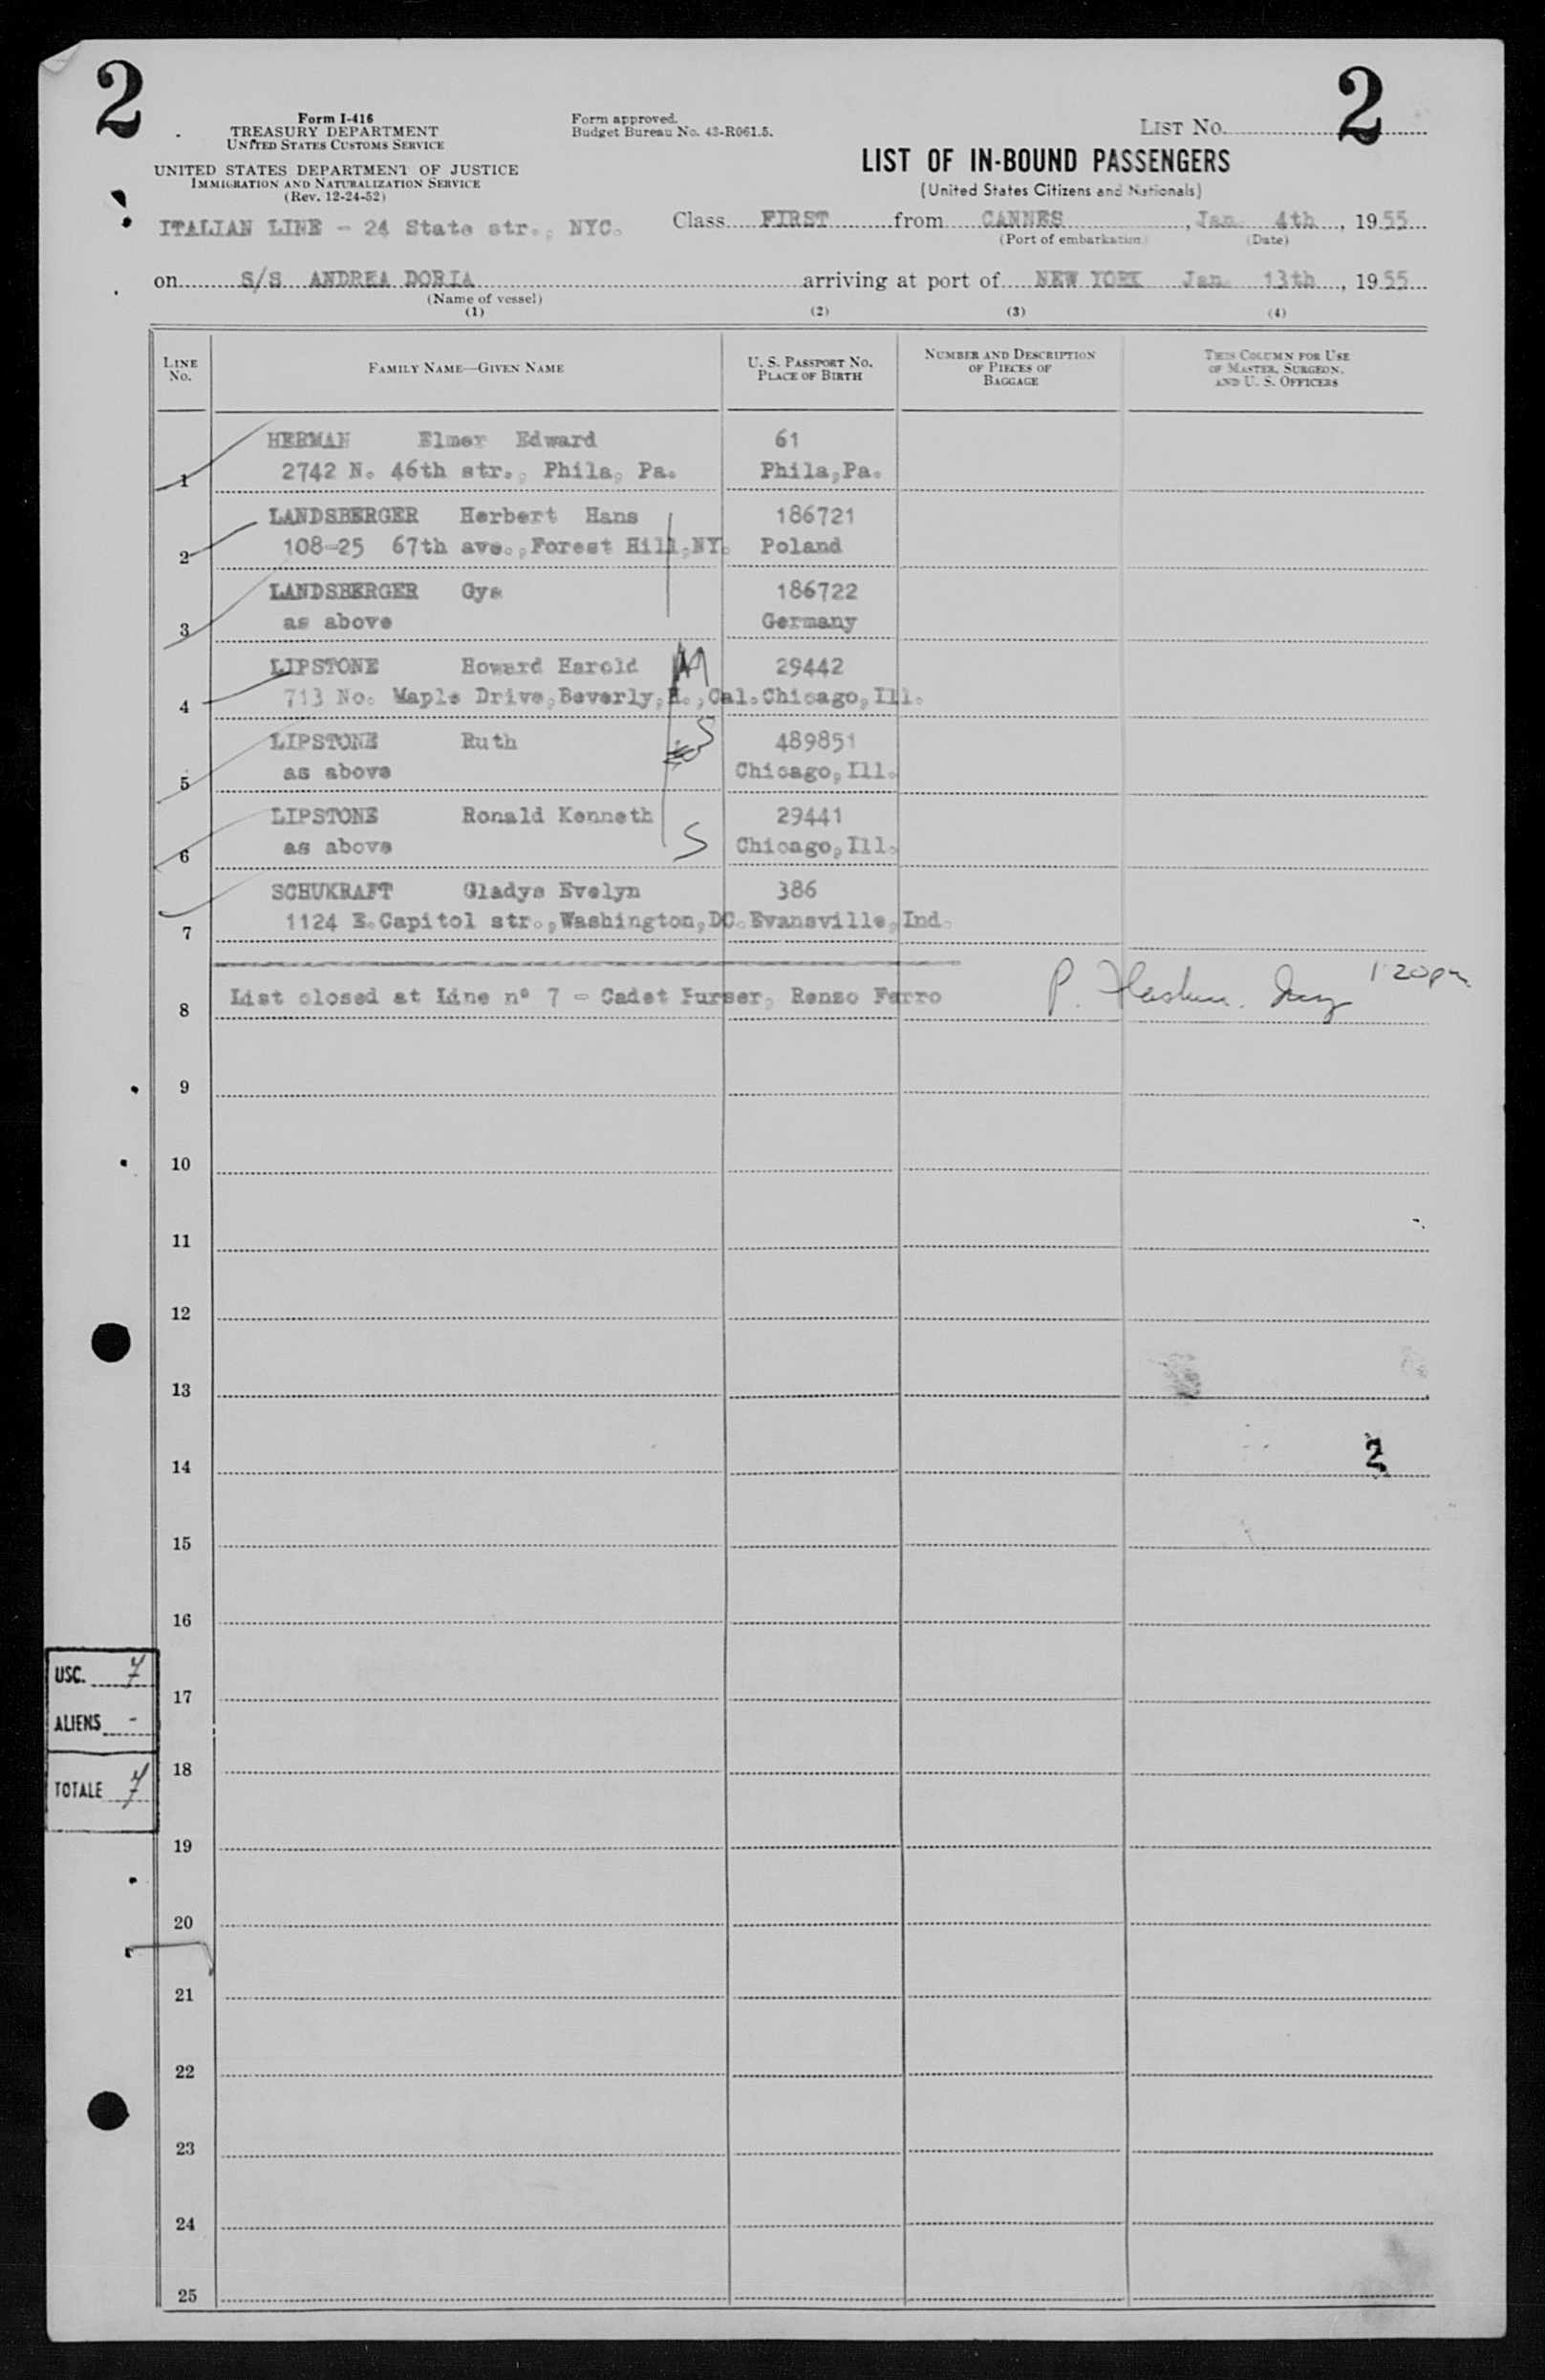 2
2
Form I-416
TREASURY DEPARTMENT
UNITED STATES CUSTOMS SERVICE
UNITED STATES DEPARTMENT OF JUSTICE
IMMIGRATION AND NATURALIZATION SERVICE
(Rev. 12-24-52)
Form approved.
Budget Bureau No. 43-R061.5.
LIST NO.
LIST OF IN-BOUND PASSENGERS
(United States Citizens and Nationals)
ITALIAN LINE - 24 State str., NYC.
Class FIRST from CANNES, Jan. 4th, 1955
(Port of embarkation) (Date)
on S/S ANDREA DORIA arriving at port of NEW YORK Jan. 13th, 1955
(Name of vessel)
(1) (2) (3) (4)
LINE NO.
FAMILY NAME—GIVEN NAME
U. S. PASSPORT NO.
PLACE OF BIRTH
NUMBER AND DESCRIPTION
OF PIECES OF
BAGGAGE
THIS COLUMN FOR USE
OF MASTER, SURGEON,
AND U. S. OFFICERS
HERMAN Elmer Edward 61
1 2742 N. 46th str., Phila, Pa. Phila,Pa.
LANDSBERGER Herbert Hans 186721
2 108-25 67th ave.,Forest Hill,NY. Poland
LANDSBERGER Gys 186722
3 as above Germany
LIPSTONE Howard Harold M 29442
4 713 No. Maple Drive,Beverly,H.,Cal. Chicago,Ill.
LIPSTONE Ruth S 489851
5 as above Chicago,Ill.
LIPSTONE Ronald Kenneth 29441
6 as above S Chicago,Ill.
SCHUKRAFT Gladys Evelyn 386
7 1124 E.Capitol str.,Washington,DC. Evansville,Ind.
8 List closed at Line nº 7 - Cadet Purser, Renzo Ferro P. 1 20pm
9
10
11
12
13
14 2
15
16
USC. 7
17
ALIENS -
18
TOTALE 7
19
20
21
22
23
24
25